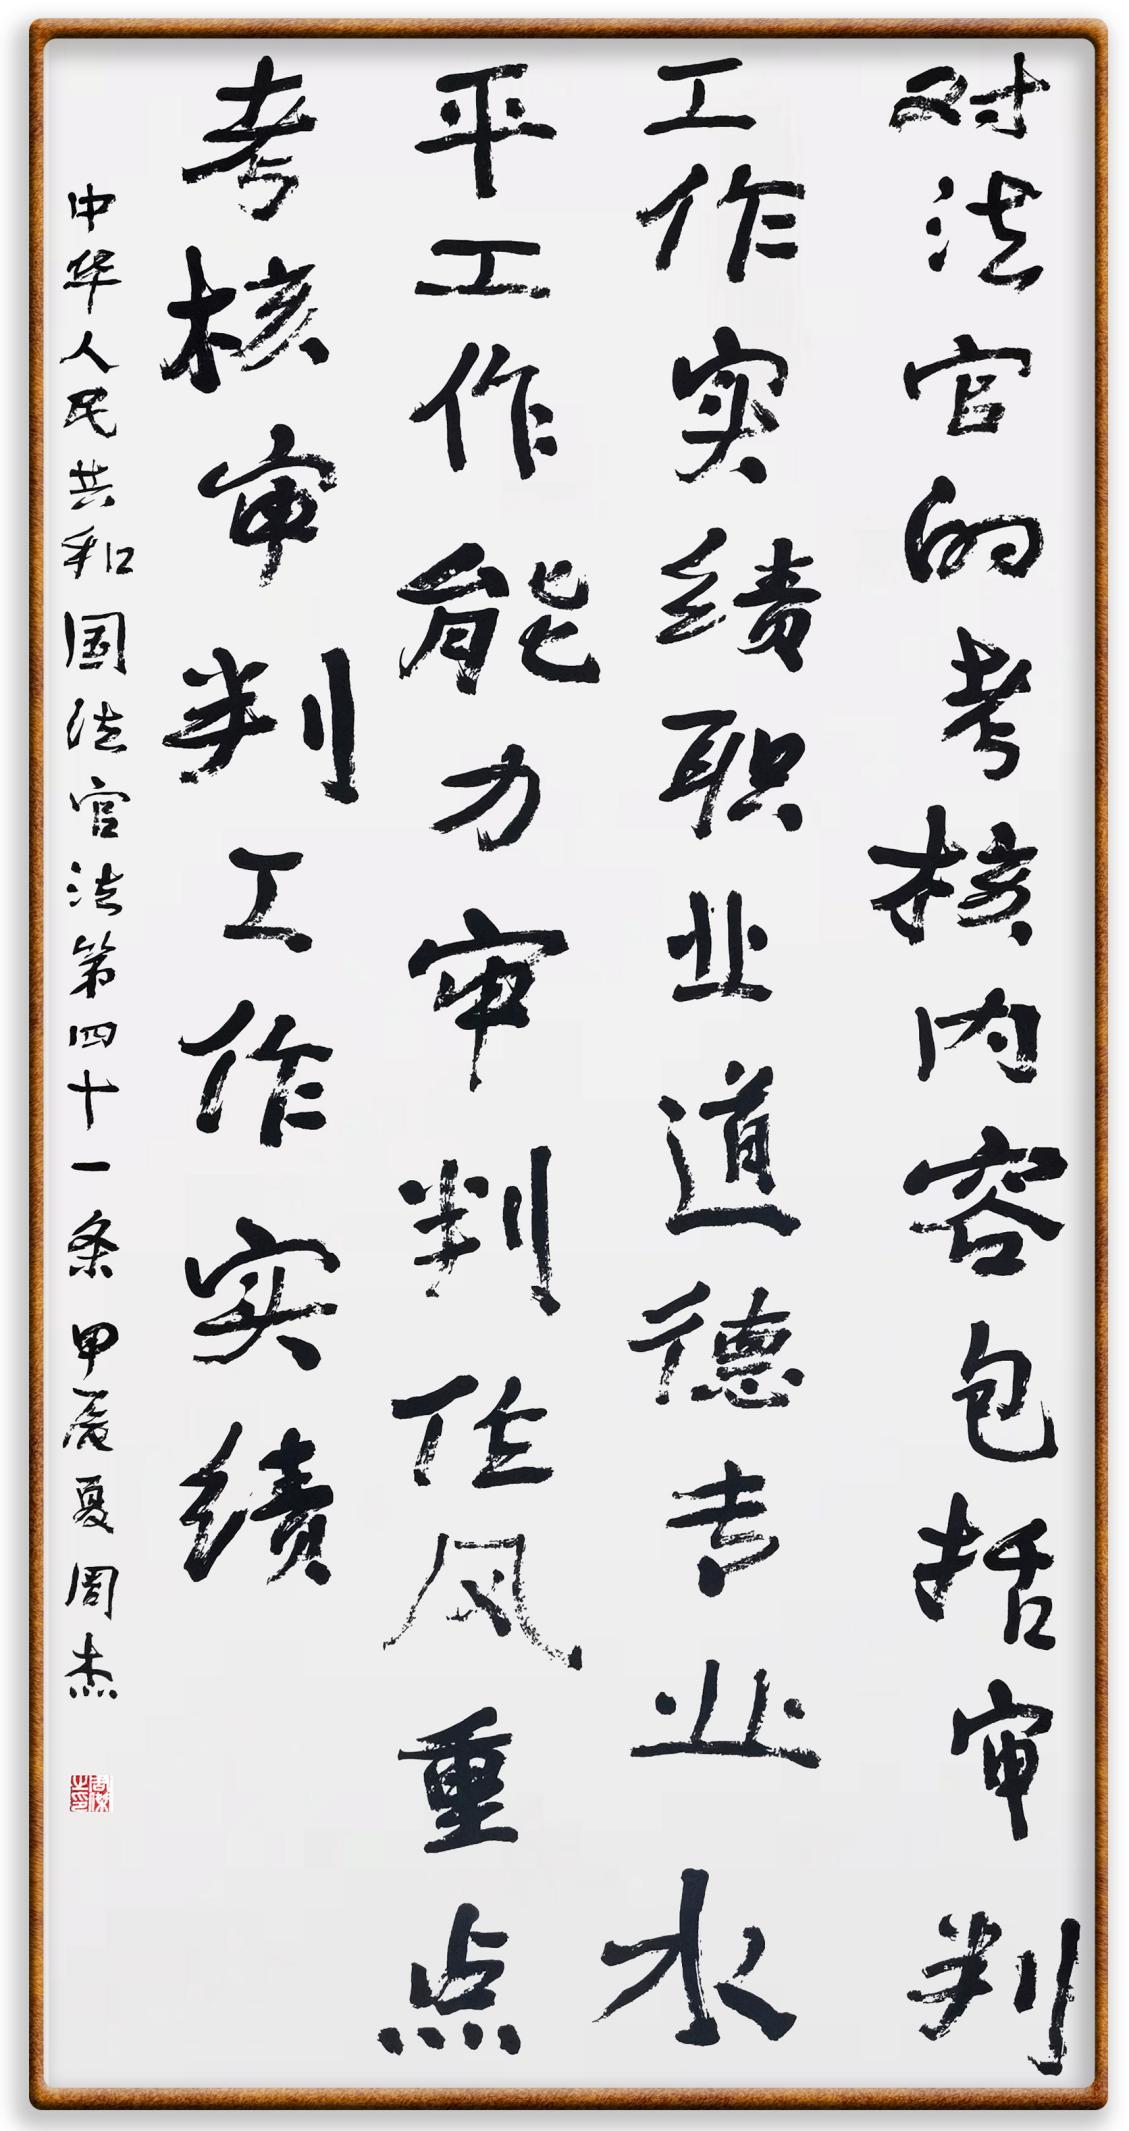 对法官的考核内容包括审判
工作实绩职业道德专业水
平工作能力审判作风重点
考核审判工作实绩
中华人民共和国法官法第四十一条 甲辰夏 周杰
周杰之印